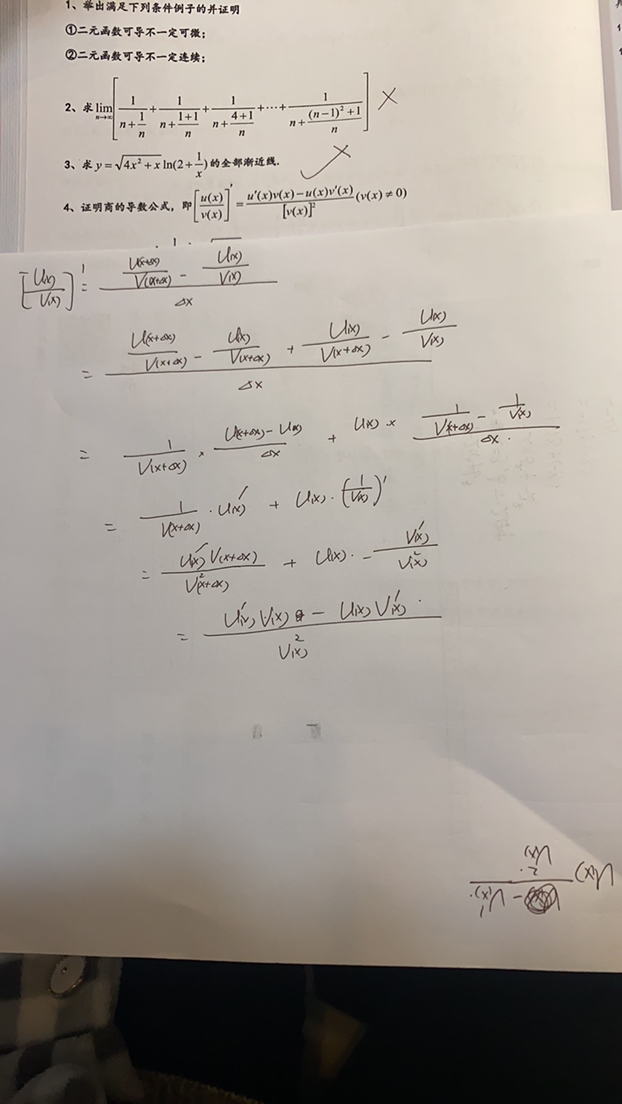 1、举出满足下列条件例子的并证明
①二元函数可导不一定可微;
②二元函数可导不一定连续;
2、求 lim_{n→∞} [ 1/(n+1/n) + 1/(n+(1+1)/n) + 1/(n+(4+1)/n) + ⋯ + 1/(n+((n-1)²+1)/n) ] ×
3、求 y = √(4x²+x) ln(2+1/x) 的全部渐近线.
4、证明商的导数公式，即 [u(x)/v(x)]′ = (u′(x)v(x)−u(x)v′(x))/[v(x)]² (v(x)≠0)
[U(x)/V(x)]′ = (U(x+Δx)/V(x+Δx) − U(x)/V(x))/Δx
= (U(x+Δx)/V(x+Δx) − U(x)/V(x+Δx) + U(x)/V(x+Δx) − U(x)/V(x))/Δx
= 1/V(x+Δx) × (U(x+Δx)−U(x))/Δx + U(x) × (1/V(x+Δx) − 1/V(x))/Δx
= 1/V(x+Δx) · U′(x) + U(x) · (1/V(x))′
= U′(x)V(x+Δx)/V²(x+Δx) + U(x) · −V′(x)/V²(x)
= (U′(x)V(x) − U(x)V′(x))/V²(x)